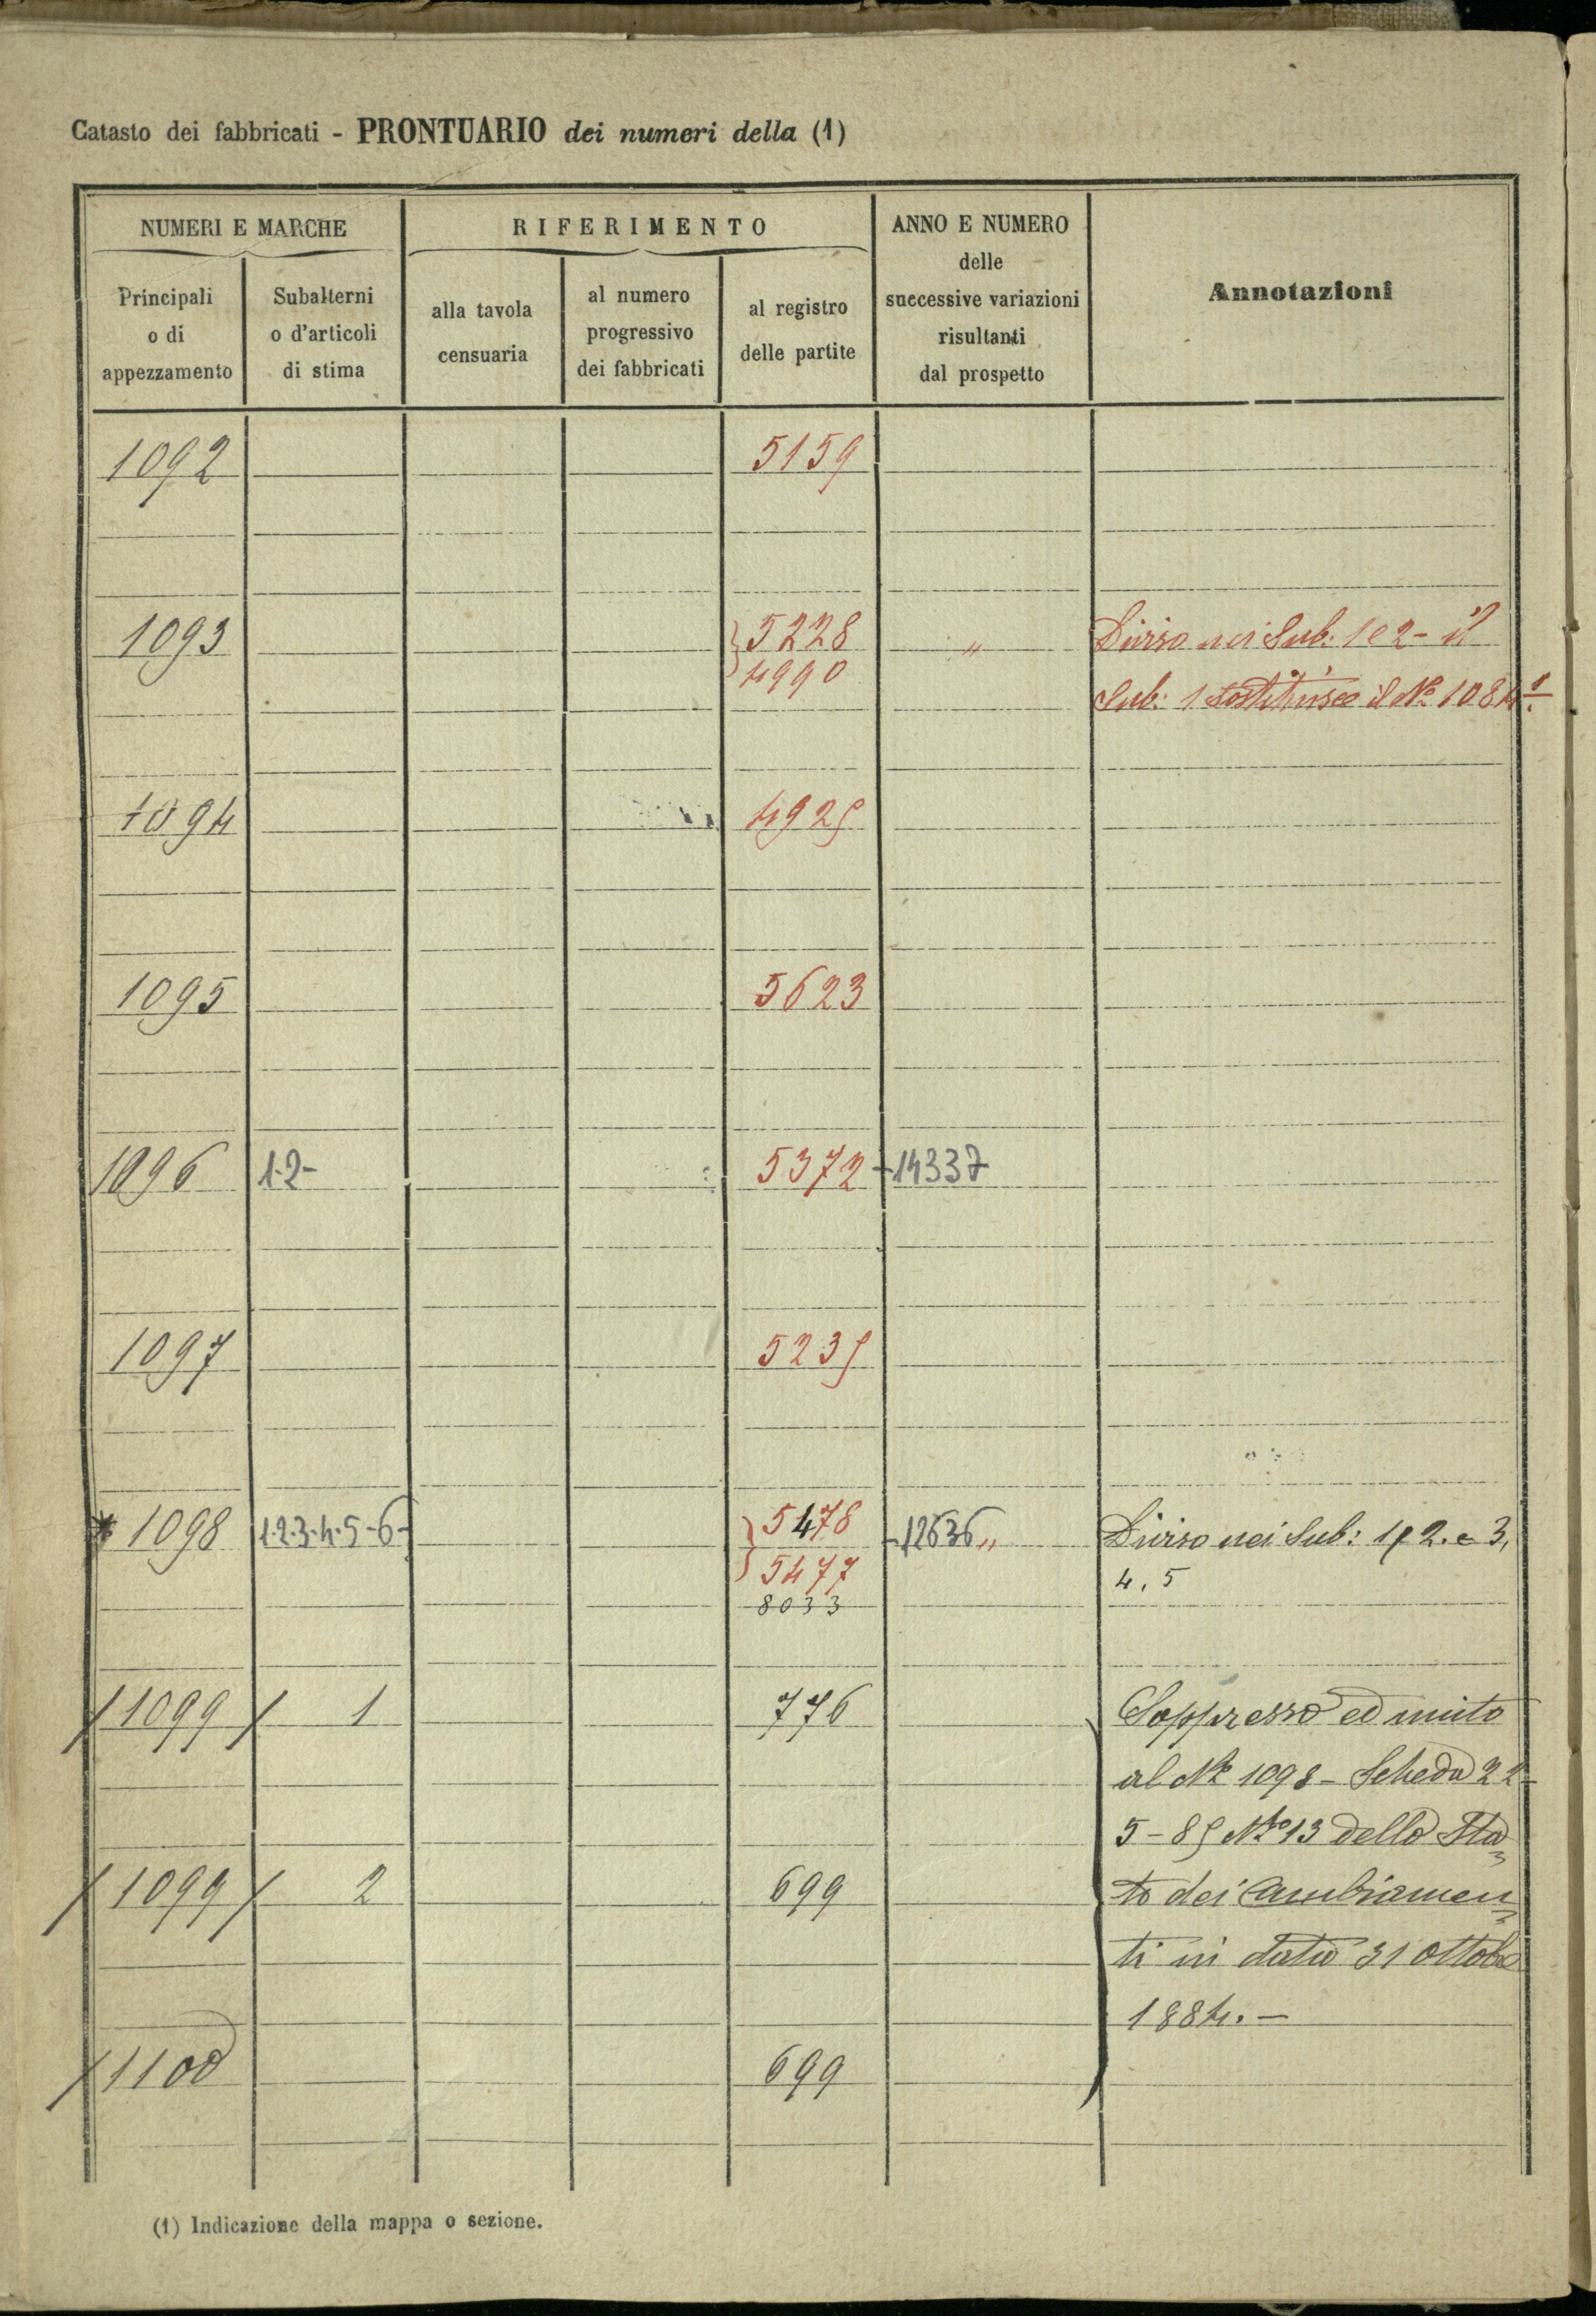 Catasto dei fabbricati - PRONTUARIO dei numeri della (1)
NUMERI E MARCHE
RIFERIMENTO
ANNO E NUMERO
delle
successive variazioni
risultanti
dal prospetto
Annotazioni
Principali
o di
appezzamento
Subalterni
o d'articoli
di stima
alla tavola
censuaria
al numero
progressivo
dei fabbricati
al registro
delle partite
1092 5159
1093 5228 " Diviso nei Sub: 1 e 2 - il
4990
Sub: 1 sostituisce il No 1084 1
1094 4925
1095 5623
1096 1-2- 5372 -14337
1097 5235
* 1098 1-2-3-4-5-6- 5478 -12636 " Diviso nei Sub: 1, 2. e 3,
5477 4, 5
8033
1099 1 776 Soppresso ed unito
al No 1098 - Scheda 22-
5-85 No 13 dello Sta=
1099 2 699 to dei Cambiamen=
ti in data 31 Ottobe
1884. -
1100 699
(1) Indicazione della mappa o sezione.